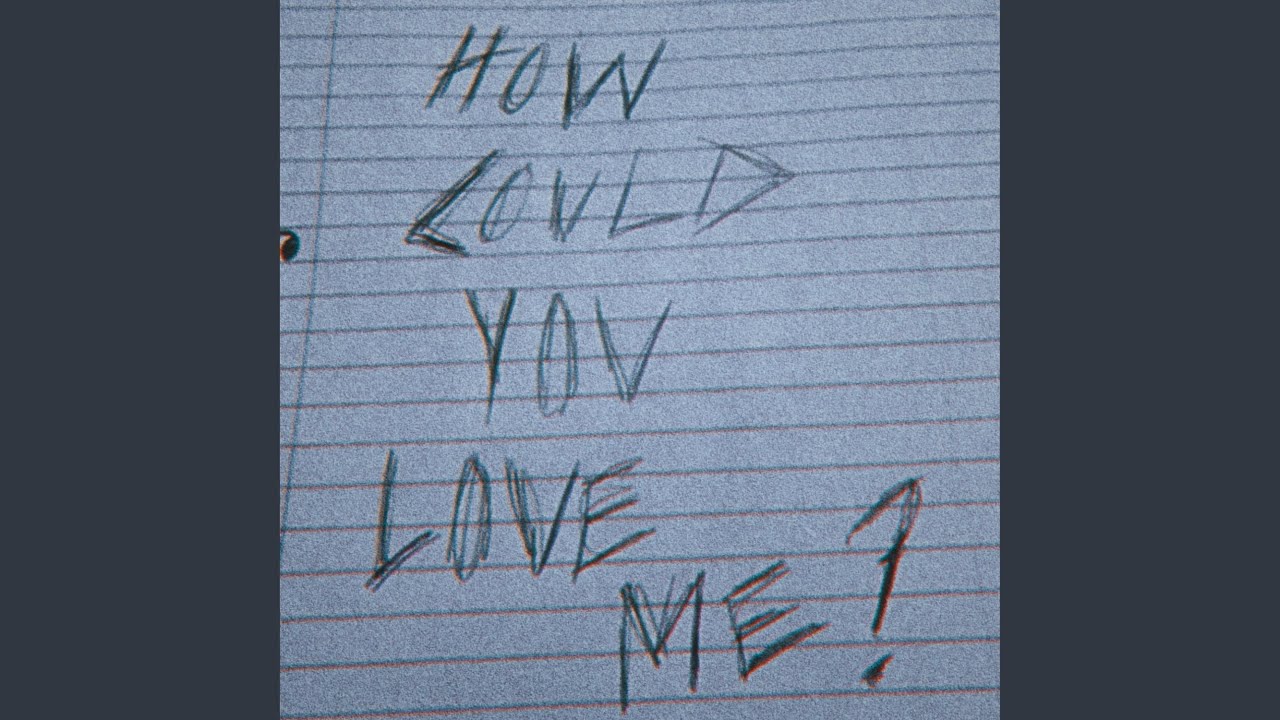 HOW
COULD
YOU
LOVE
ME?